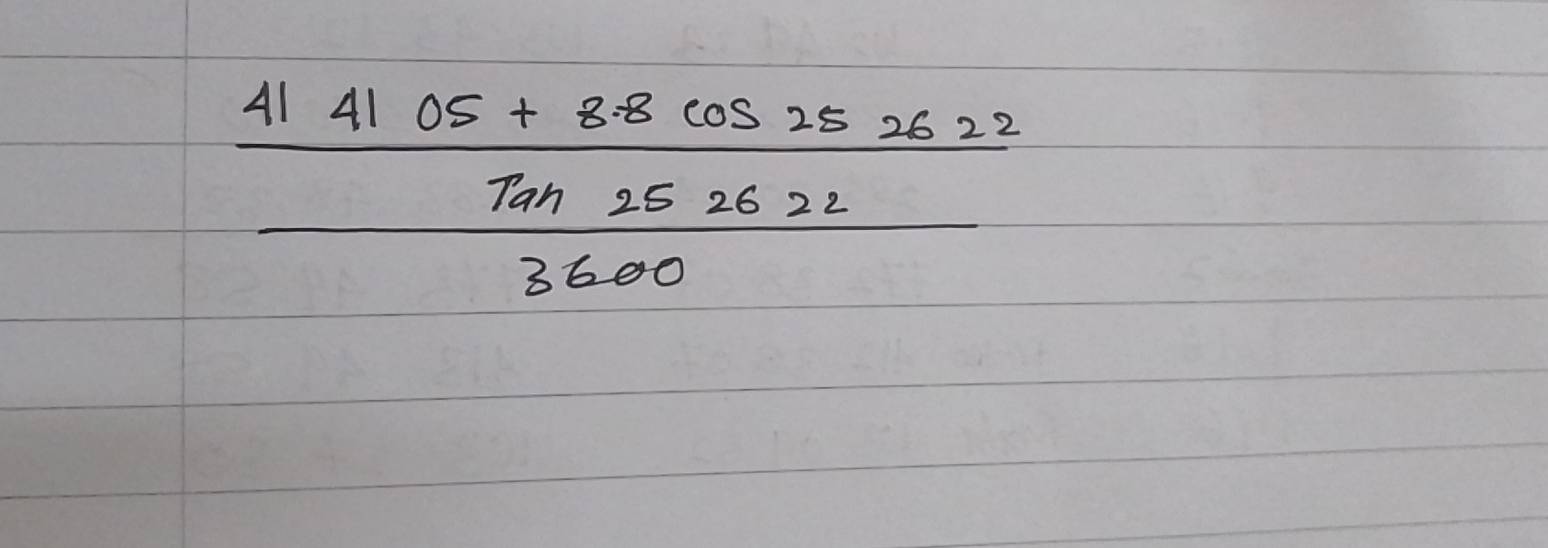 41 41 05 + 8.8 cos 25 26 22
Tan 25 26 22
3600